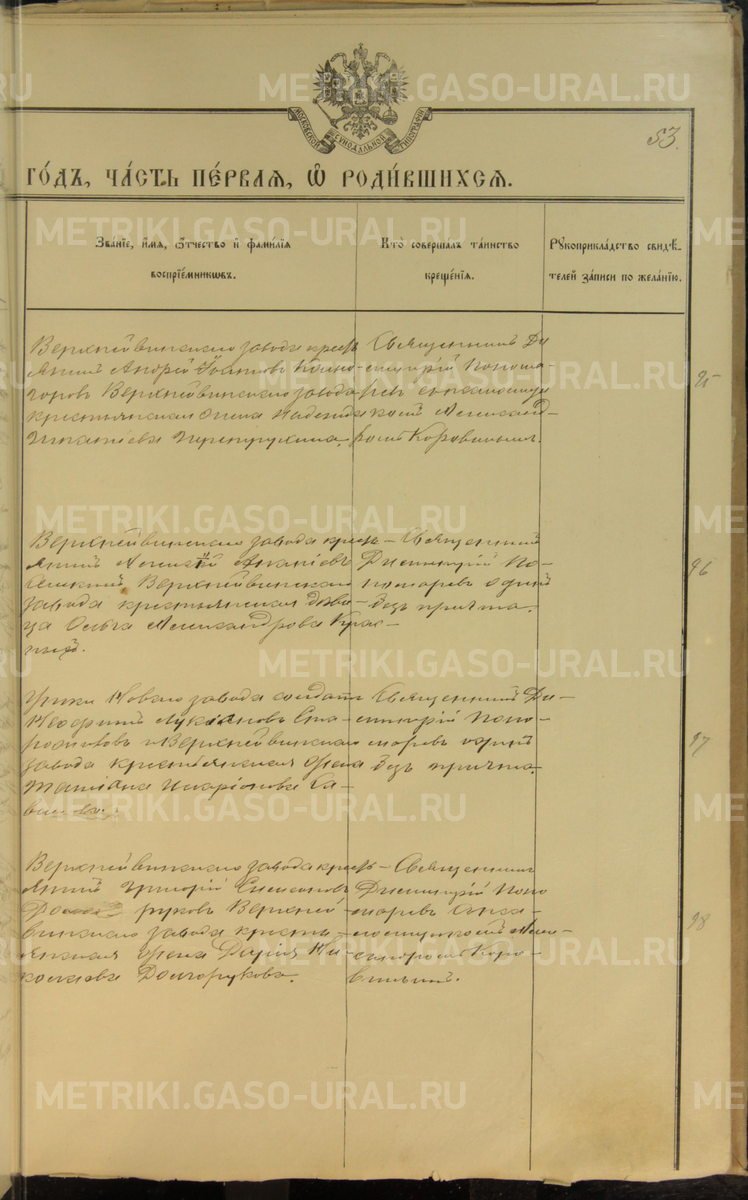 METRIKI.GASO-URAL.RU
МОСКОВСКОЙ СѴНОДАЛЬНОЙ ТИПОГРАФІИ
53.
ГОДЪ, ЧАСТЬ ПЕ́РВАЯ, Ѡ РОДИ́ВШИХСЯ.
Зва́нїе, и́мя, о́тчество и҆ фами́лїя воспрїе́мникѡвъ.
Кто̀ соверша́лъ та́инство креще́нїя.
Рꙋкоприкла́дство свидѣ́телей за́писи по жела́нїю.
Верхнейвинскаго завода кресть
янинъ Андрей Іоанновъ
Верхнейвинскаго завода
крестьянская жена Надежда
Игнатіева
Священникъ Ди
митрій Поно
маревъ съ псаломщи
комъ Александ
ромъ Коровинымъ.
95
Верхнейвинскаго завода кресть
янинъ Алексѣй
Верхнейвинскаго
завода крестьянская дѣви
ца Ольга Александрова
Священникъ
Димитрій По
номаревъ одинъ
безъ причта.
96
завода солдатъ
Лукіановъ
и Верхнейвинскаго
завода крестьянская жена
Татіана Иларіонова
Священникъ Ди
митрій Поно
маревъ одинъ
безъ причта.
97
Верхнейвинскаго завода кресть
янинъ Григорій Симеоновъ
Долгоруковъ Верхней
винскаго завода кресть
янская жена Дарія Ни
колаева Долгорукова.
Священникъ
Димитрій Поно
маревъ съ пса
ломщикомъ Алек
сандромъ Коро
винымъ.
98